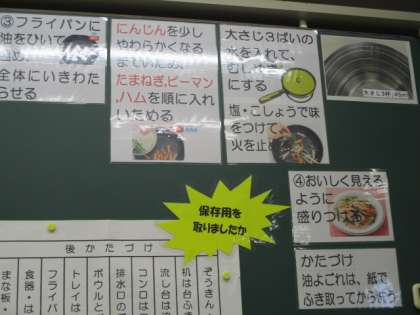 ③フライパンに
油をひいて
全体にいきわた
らせる
にんじんを少し
やわらかくなる
までいため、
たまねぎ,ピーマン
,ハムを順に入れ
いためる
大さじ3ばいの
水を入れて、
にする
塩・こしょうで味
をつけて、
火を止め
大さじ3杯
④おいしく見える
ように
盛りつける
かたづけ
油よごれは、紙で
ふき取ってから洗う
保存用を
取りましたか
後かたづけ
ぞうきん
机は台ふき
流し台は
コンロは
排水口の
ボウルと
トレイは
フライパ
食器・は
まな板・